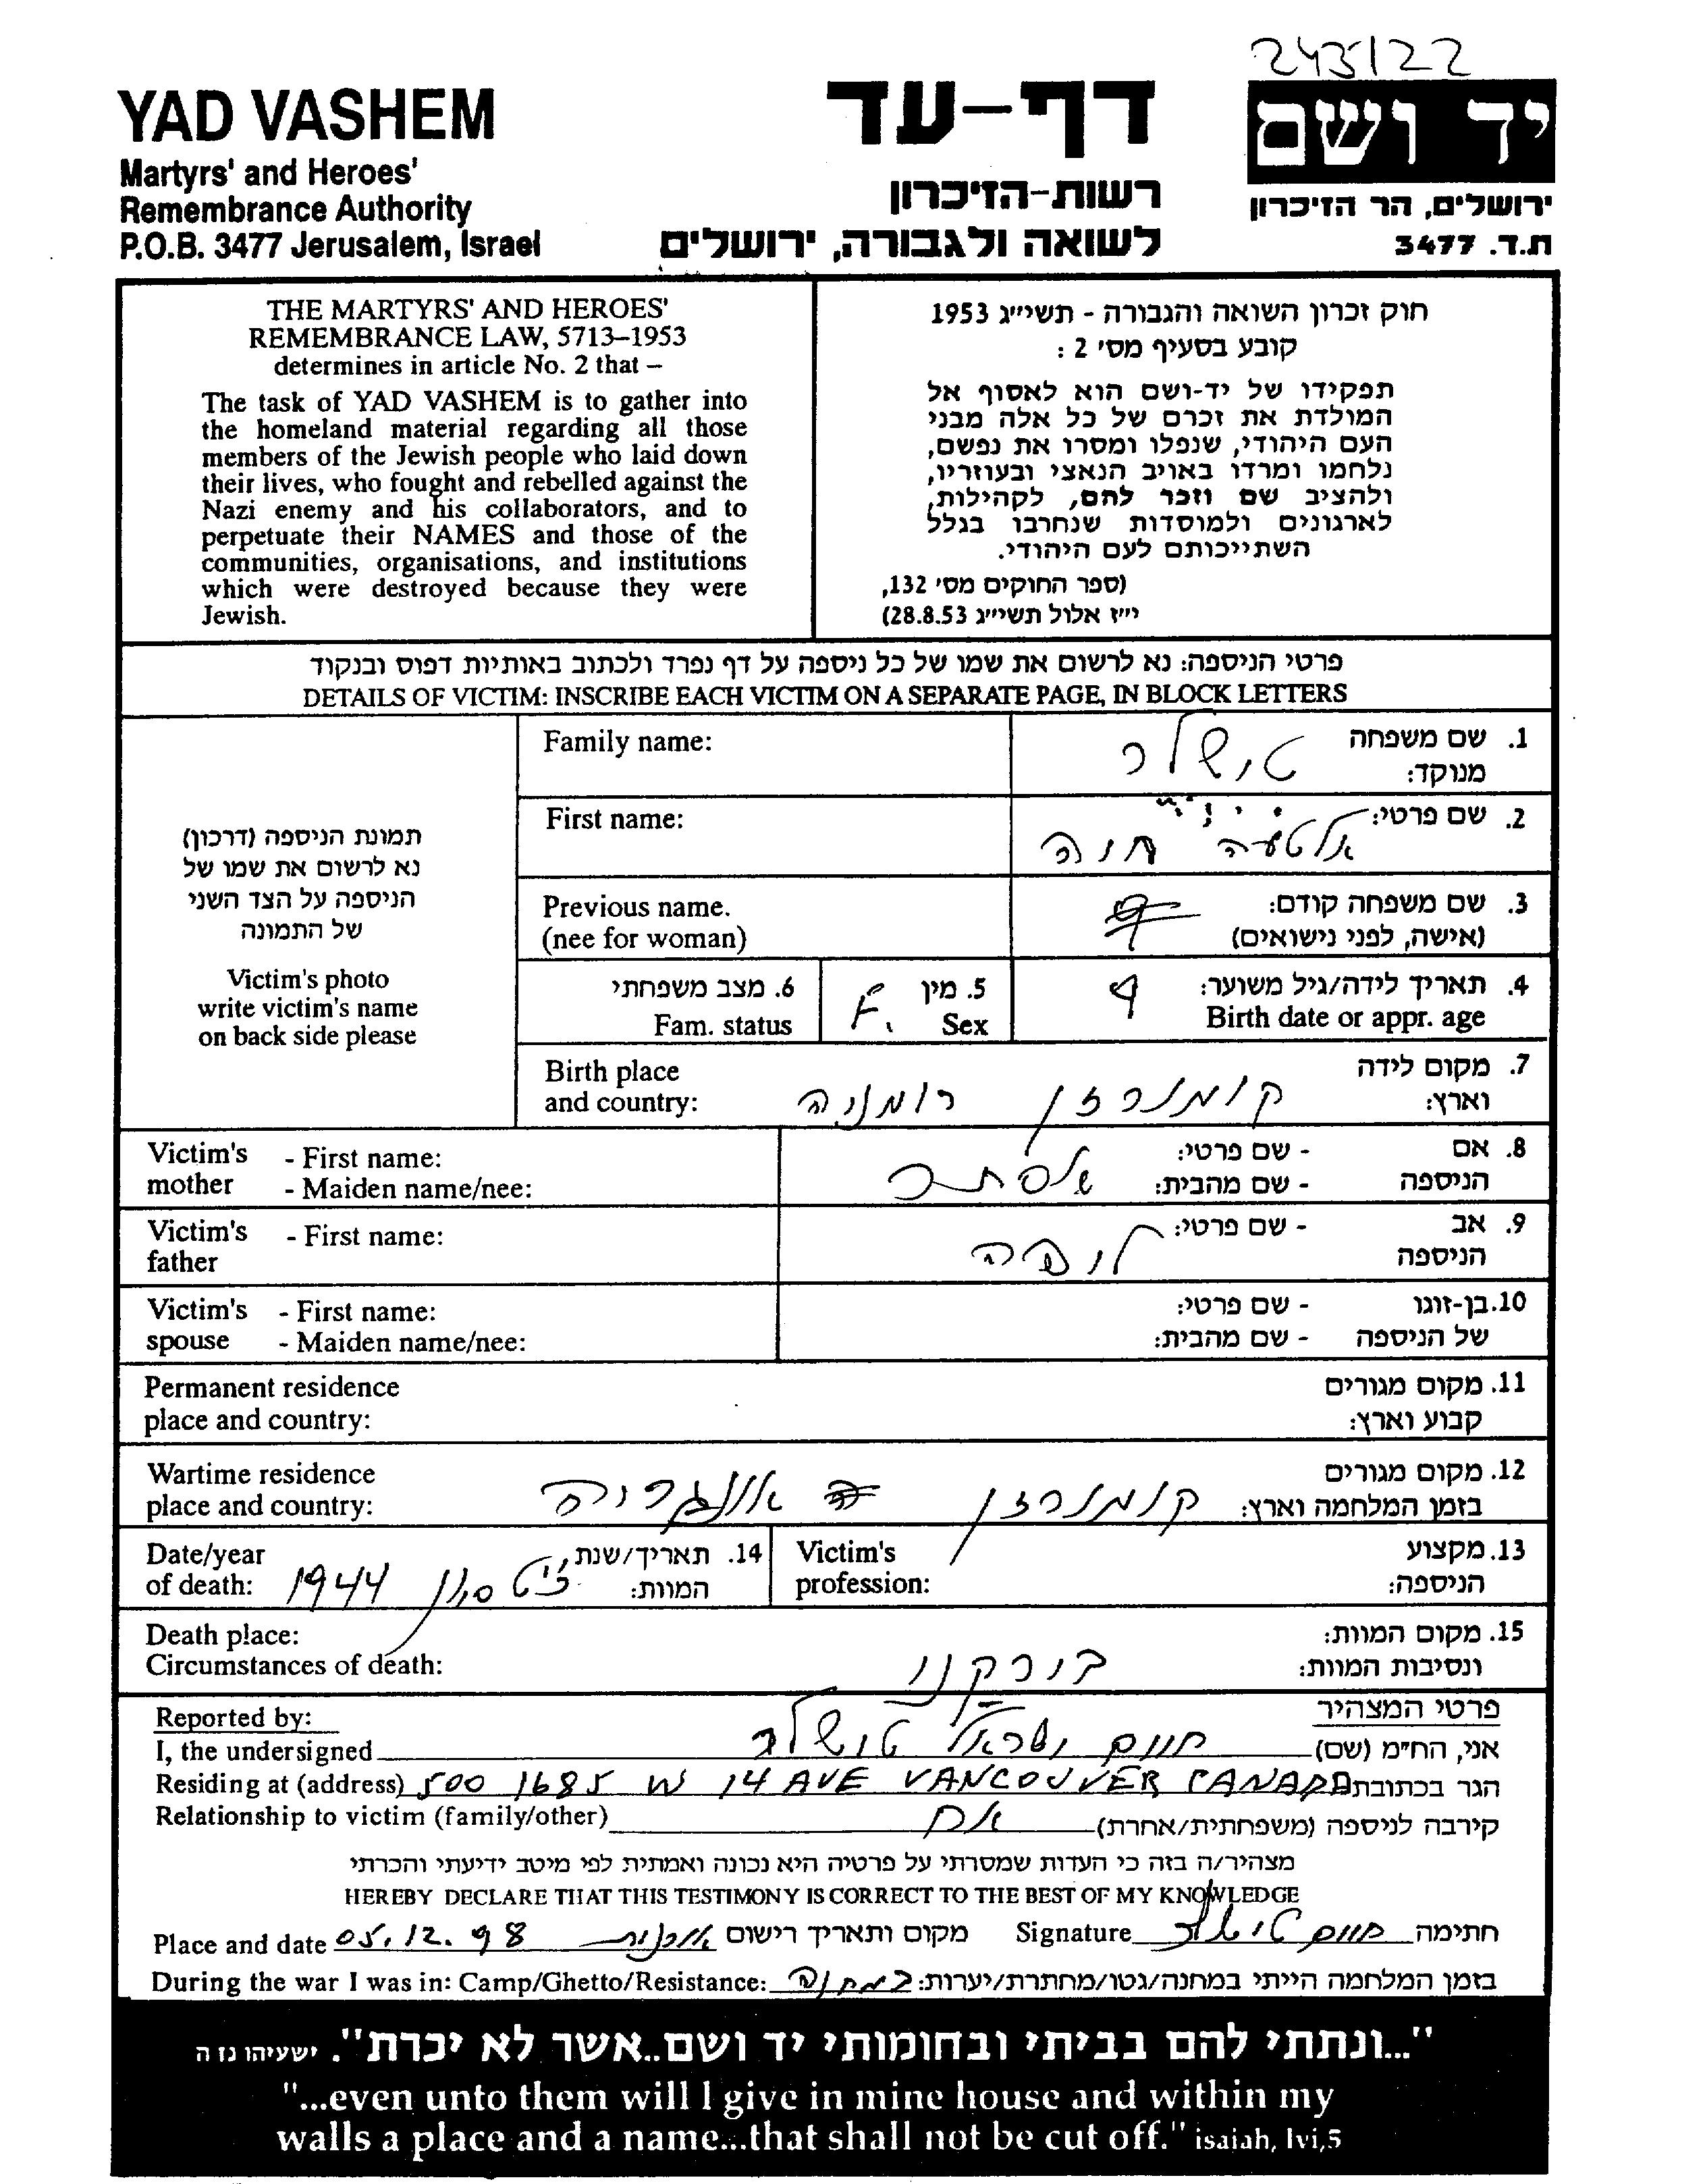 243/22
YAD VASHEM
Martyrs' and Heroes'
Remembrance Authority
P.O.B. 3477 Jerusalem, Israel
דף-עד
רשות-הזיכרון
לשואה ולגבורה, ירושלים
יד ושם
ירושלים, הר הזיכרון
ת.ד. 3477
THE MARTYRS' AND HEROES'
REMEMBRANCE LAW, 5713–1953
determines in article No. 2 that –
The task of YAD VASHEM is to gather into
the homeland material regarding all those
members of the Jewish people who laid down
their lives, who fought and rebelled against the
Nazi enemy and his collaborators, and to
perpetuate their NAMES and those of the
communities, organisations, and institutions
which were destroyed because they were
Jewish.
חוק זכרון השואה והגבורה - תשי״ג 1953
קובע בסעיף מס׳ 2 :
תפקידו של יד-ושם הוא לאסוף אל
המולדת את זכרם של כל אלה מבני
העם היהודי, שנפלו ומסרו את נפשם,
נלחמו ומרדו באויב הנאצי ובעוזריו,
ולהציב שם וזכר להם, לקהילות,
לארגונים ולמוסדות שנחרבו בגלל
השתייכותם לעם היהודי.
(ספר החוקים מס׳ 132,
י״ז אלול תשי״ג 28.8.53)
פרטי הניספה: נא לרשום את שמו של כל ניספה על דף נפרד ולכתוב באותיות דפוס ובנקוד
DETAILS OF VICTIM: INSCRIBE EACH VICTIM ON A SEPARATE PAGE, IN BLOCK LETTERS
תמונת הניספה (דרכון)
נא לרשום את שמו של
הניספה על הצד השני
של התמונה
Victim's photo
write victim's name
on back side please
Family name:
טישלר
1. שם משפחה
מנוקד:
First name:
2. שם פרטי:
אלטע חנה
Previous name.
(nee for woman)
3. שם משפחה קודם:
(אישה, לפני נישואים)
6. מצב משפחתי
Fam. status
5. מין
Sex
F.
4. תאריך לידה/גיל משוער:
Birth date or appr. age
9
Birth place
and country:
7. מקום לידה
וארץ:
קומנרזן רומניה
Victim's mother
- First name:
- Maiden name/nee:
אסתר
8. אם הניספה
- שם פרטי:
- שם מהבית:
Victim's father
- First name:
9. אב הניספה
- שם פרטי:
Victim's spouse
- First name:
- Maiden name/nee:
10. בן-זוגו של הניספה
- שם פרטי:
- שם מהבית:
Permanent residence
place and country:
11. מקום מגורים
קבוע וארץ:
Wartime residence
place and country:
12. מקום מגורים
בזמן המלחמה וארץ:
קומנרזן אונגריה
Date/year
of death:
14. תאריך/שנת
המוות:
סוון 1944
Victim's
profession:
13. מקצוע
הניספה:
Death place:
Circumstances of death:
15. מקום המוות:
ונסיבות המוות:
בירקנו
Reported by:
פרטי המצהיר
I, the undersigned
חיים ישראל טישלר
אני, הח״מ (שם)
Residing at (address) 500 1685 W 14 AVE VANCOUVER CANADA הגר בכתובת
Relationship to victim (family/other) אח קירבה לניספה (משפחתית/אחרת)
מצהיר/ה בזה כי העדות שמסרתי על פרטיה היא נכונה ואמתית לפי מיטב ידיעתי והכרתי
HEREBY DECLARE THAT THIS TESTIMONY IS CORRECT TO THE BEST OF MY KNOWLEDGE
Place and date 05.12.98 מקום ותאריך רישום
Signature חיים טישלר חתימה
During the war I was in: Camp/Ghetto/Resistance: במחנה בזמן המלחמה הייתי במחנה/גטו/מחתרת/יערות:
"...ונתתי להם בביתי ובחומותי יד ושם..אשר לא יכרת". ישעיהו נו ה
"...even unto them will I give in mine house and within my
walls a place and a name...that shall not be cut off." isaiah, lvi,5